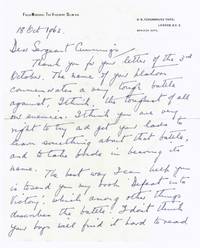 FIELD MARSHAL THE VISCOUNT SLIM K.G.
LONDON E.C.3.
18 Oct 1962.
Dear Sergeant Cummings
Thank you for your letter of the 3rd
October. The name of your platoon
commemorates a very tough battle
against, I think, the toughest of all
our enemies. I think you are
right to try and get your
to
learn something about that battle,
and to take pride in bearing its
name.
The best way I can help you
is to send you my book Defeat into
Victory, which among other things
describes the battle. I don't think
your boys will find it hard to read